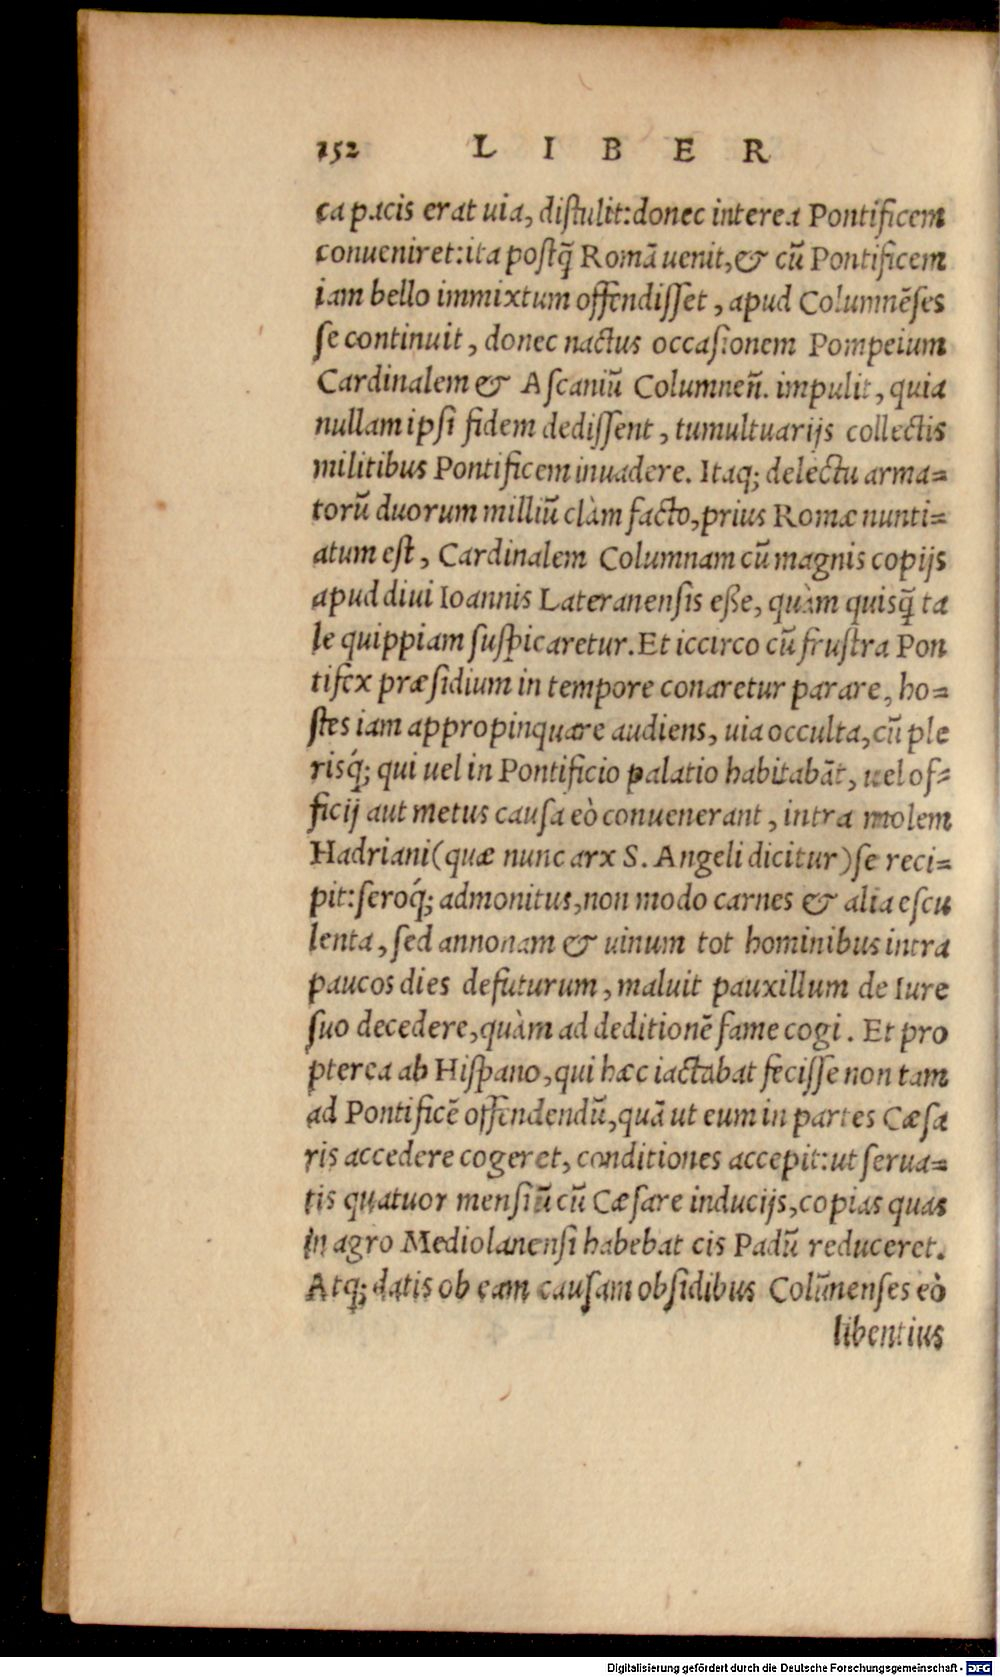 152 LIBER
ca pacis erat uia, distulit:donec interea Pontificem
conueniret:ita postq̃ Romā uenit,& cū Pontificem
iam bello immixtum offendisset, apud Columnēses
se continuit, donec nactus occasionem Pompeium
Cardinalem & Ascaniū Columneñ. impulit, quia
nullam ipsi fidem dedissent, tumultuarijs collectis
militibus Pontificem inuadere. Itaq; delectu arma=
torū duorum milliū clàm facto,prius Romæ nunti=
atum est, Cardinalem Columnam cū magnis copijs
apud diui Ioannis Lateranensis eße, quàm quisq̃ ta
le quippiam suspicaretur. Et iccirco cū frustra Pon
tifex præsidium in tempore conaretur parare, ho=
stes iam appropinquare audiens, uia occulta,cū ple
risq́; qui uel in Pontificio palatio habitabāt, uel of=
ficij aut metus causa eò conuenerant, intra molem
Hadriani(quæ nunc arx S. Angeli dicitur)se reci=
pit:seroq́; admonitus,non modo carnes & alia escu
lenta, sed annonam & uinum tot hominibus intra
paucos dies defuturum, maluit pauxillum de Iure
suo decedere,quàm ad deditionē fame cogi. Et pro
pterea ab Hispano,qui hæc iactabat fecisse non tam
ad Pontificē offendendū,quā ut eum in partes Cæsa
ris accedere cogeret, conditiones accepit:ut serua=
tis quatuor mensiū cū Cæsare inducijs,copias quas
in agro Mediolanensi habebat cis Padū reduceret.
Atq; datis ob eam causam obsidibus Colūnenses eò
libentius
Digitalisierung gefördert durch die Deutsche Forschungsgemeinschaft - DFG